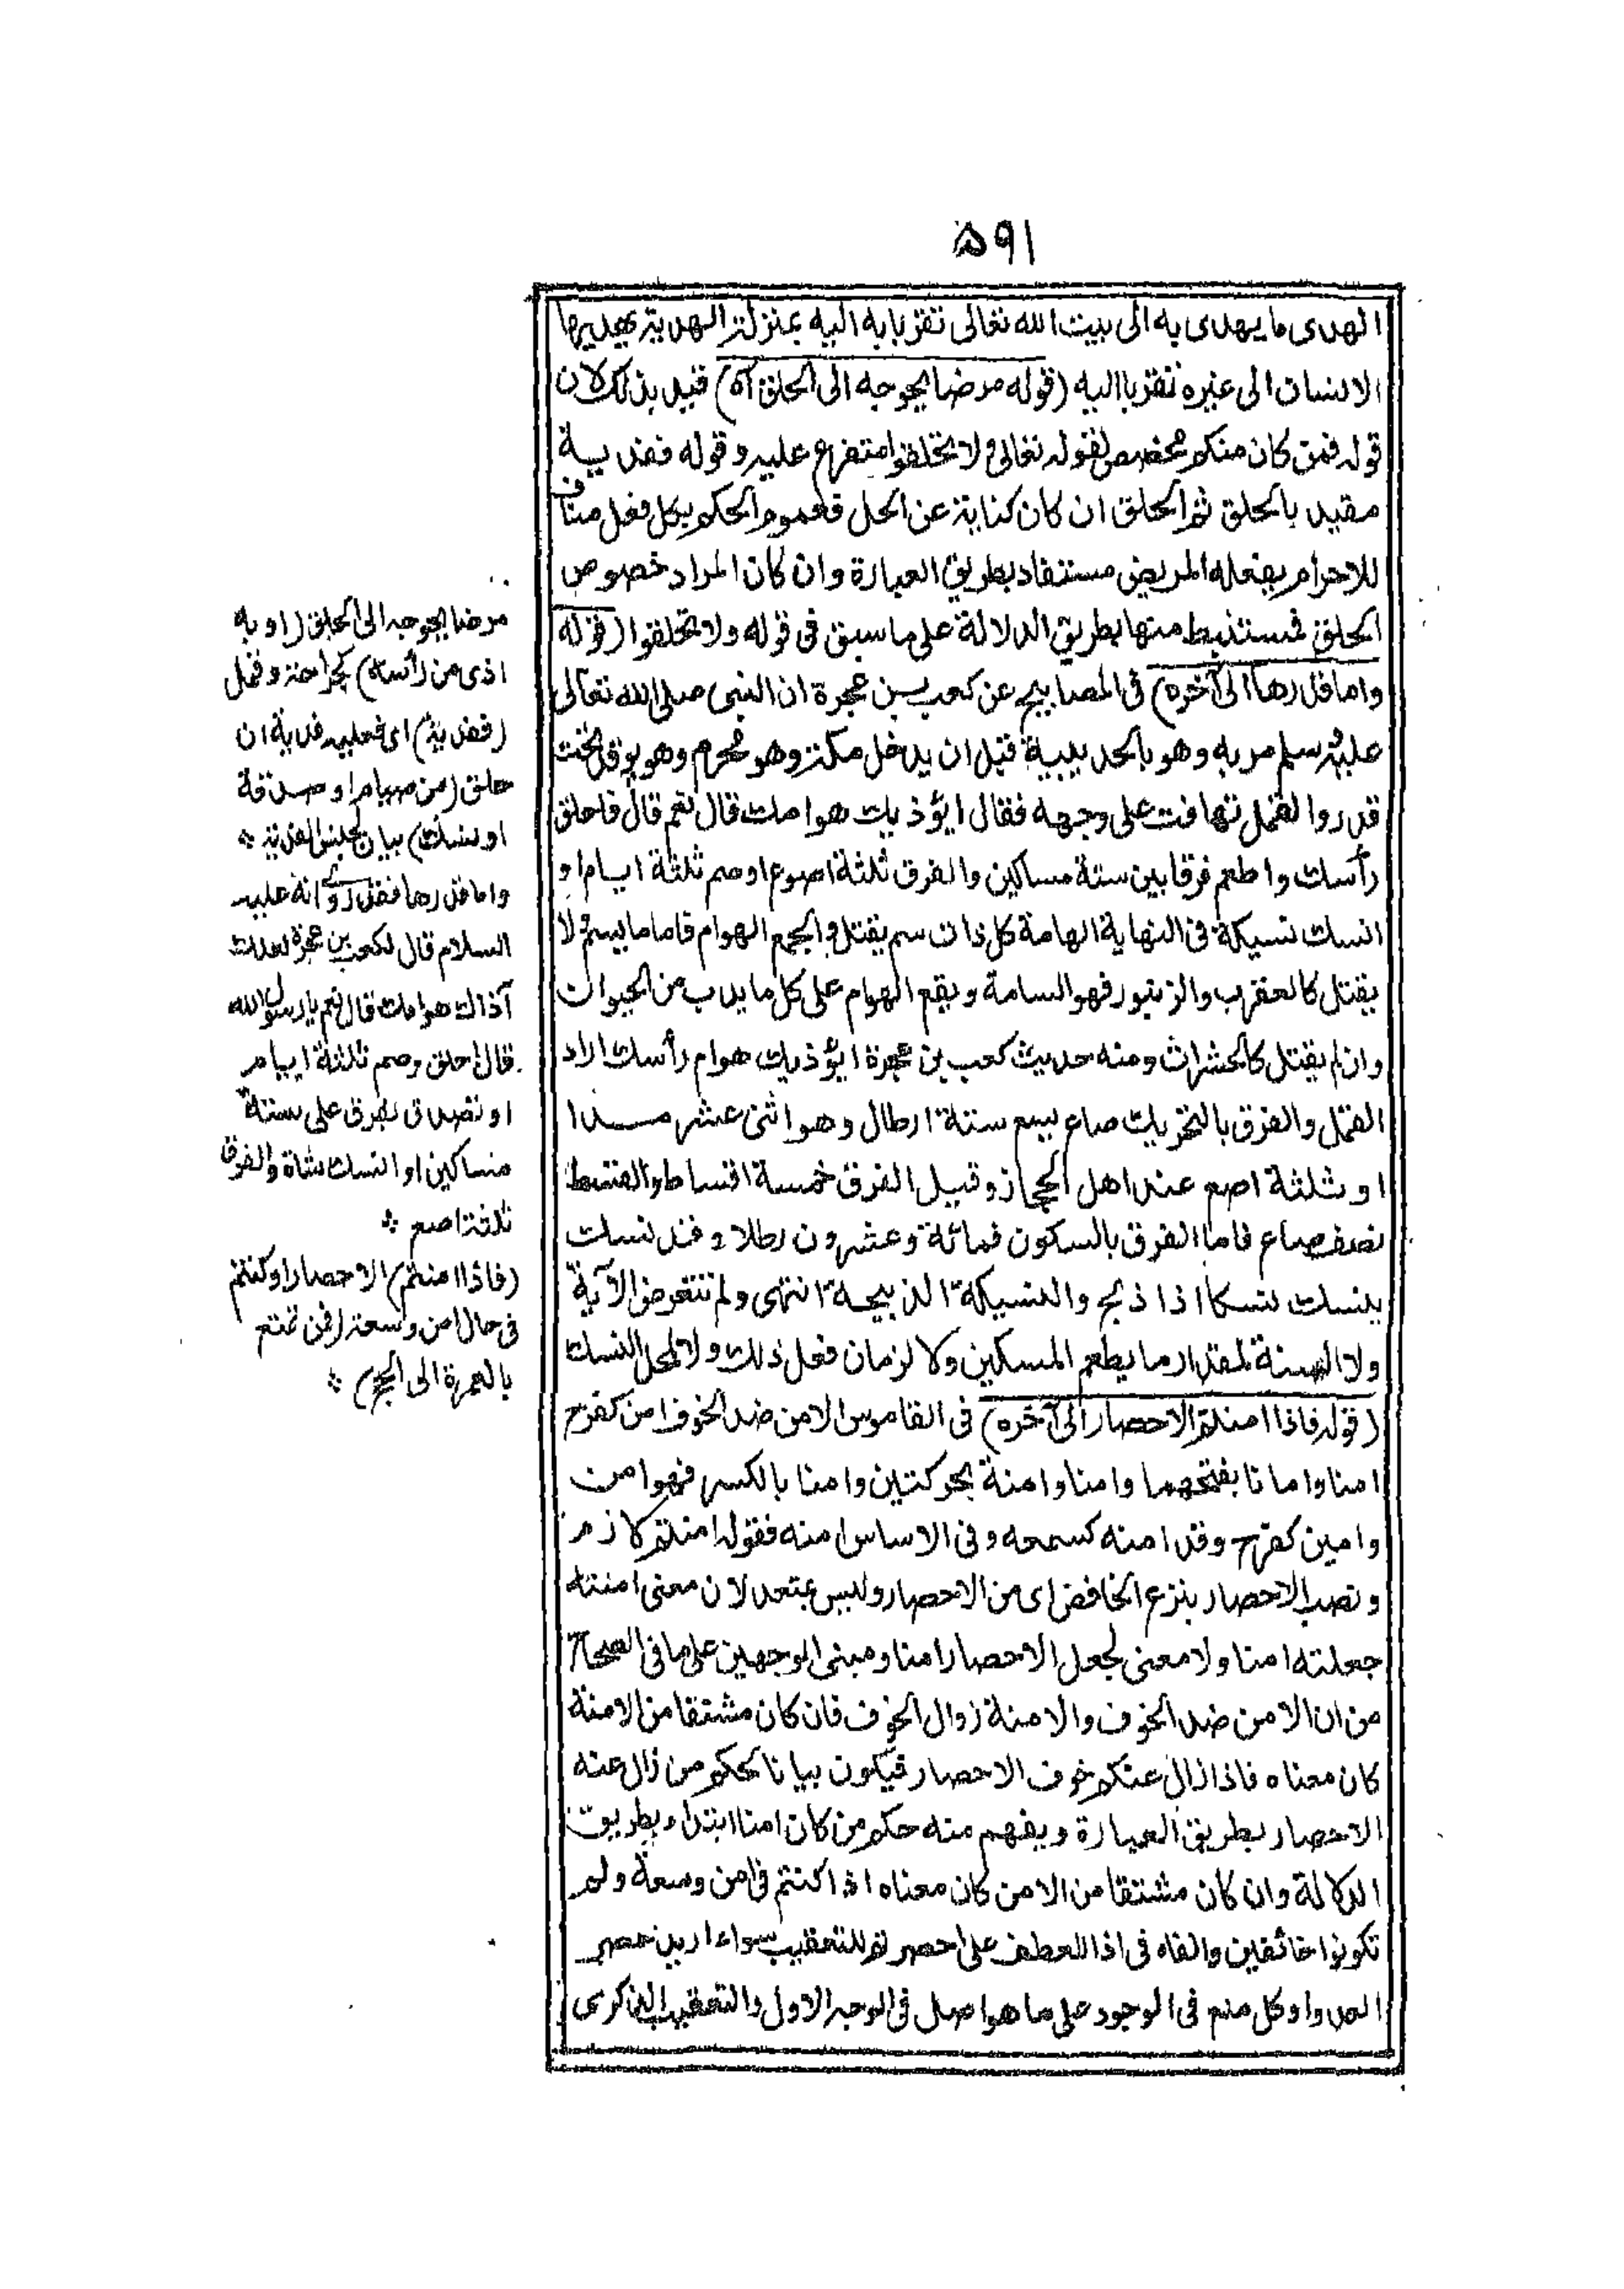 ٥٩١
الهدى ما يهدى به الى بيت الله تعالى تقربا به اليه بمنزلة الهدية يهديها
الانسان الى غيره تقربا اليه (قوله مرضا يحوجه الى الحلق آه) قيد بذلك لان
قوله فمن كان منكم مخصص لقوله تعالى ولا تحلقوا متفرع عليه وقوله ففدية
مقيد بالحلق ثم الحلق ان كان كناية عن الحل فعموم الحكم بكل فعل مناف
للاحرام يفعله المريض مستفاد بطريق العبارة وان كان المراد خصوص
الحلق فمستنبط منها بطريق الدلالة على ما سبق فى قوله ولا تحلقوا (قوله
واما قدرها الى آخره) فى المصابيح عن كعب بن عجرة ان النبى صلى الله تعالى
عليه وسلم مر به وهو بالحديبية قبل ان يدخل مكة وهو محرم وهو يوقد تحت
قدر والقمل تهافت على وجهه فقال ايؤذيك هوامك قال نعم قال فاحلق
رأسك واطعم فرقا بين ستة مساكين والفرق ثلثة اصوع او صم ثلثة ايام او
انسك نسيكة فى النهاية الهامة كل ذات سم يقتل والجمع الهوام فاما ما يسم ولا
يقتل كالعقرب والزنبور فهو السامة ويقع الهوام على كل ما يدب من الحيوان
وان لم يقتل كالحشرات ومنه حديث كعب بن عجرة ايؤذيك هوام رأسك اراد
القمل والفرق بالتحريك صاع يسع ستة ارطال وهو اثنى عشر مدا
او ثلثة اصع عند اهل الحجاز وقيل الفرق خمسة اقساط والقسط
نصف صاع فاما الفرق بالسكون فمائة وعشرون رطلا وقد نسك
ينسك نسكا اذا ذبح والنسيكة الذبيحة انتهى ولم تتعرض الآية
ولا السنة لمقدار ما يطعم المسكين ولا لزمان فعل ذلك ولا لمحل النسك
(قوله فاذا امنتم الاحصار الى آخره) فى القاموس الامن ضد الخوف امن كفرح
امنا وامانا بفتحهما وامنا وامنة بحركتين وامنا بالكسر فهو امن
وامين كفرح وقد امنه كسمعه وفى الاساس امنه فقوله امنتم لازم
ونصب الاحصار بنزع الخافض اى من الاحصار وليس بمتعد لان معنى امنته
جعلته امنا ولا معنى لجعل الاحصار امنا ومبنى الوجهين على ما فى الصحاح
من ان الامن ضد الخوف والامنة زوال الخوف فان كان مشتقا من الامنة
كان معناه فاذا زال عنكم خوف الاحصار فيكون بيانا لحكم من زال عنه
الاحصار بطريق العبارة ويفهم منه حكم من كان امنا ابتداء بطريق
الدلالة وان كان مشتقا من الامن كان معناه اذا كنتم فى امن وسعة ولم
تكونوا خائفين والفاء فى اذا للعطف على احصرتم للتعقيب سواء اريد حصر
العدو او كل منع فى الوجود على ما هو اصل فى الوجه الاول والتعقيب الذكرى
مرضا يحوجه الى الحلق (او به
اذى من رأسه) كجراحة وقمل
(ففدية) اى فعليه فدية ان
حلق (من صيام او صدقة
او نسك) بيان لجنس الفدية *
واما قدرها فقد روى انه عليه
السلام قال لكعب بن عجرة لعلك
آذاك هوامك قال نعم يا رسول الله
قال احلق وصم ثلثة ايام
او تصدق بفرق على ستة
مساكين او انسك شاة والفرق
ثلثة اصع *
(فاذا امنتم) الاحصار او كنتم
فى حال امن وسعة (فمن تمتع
بالعمرة الى الحج) *